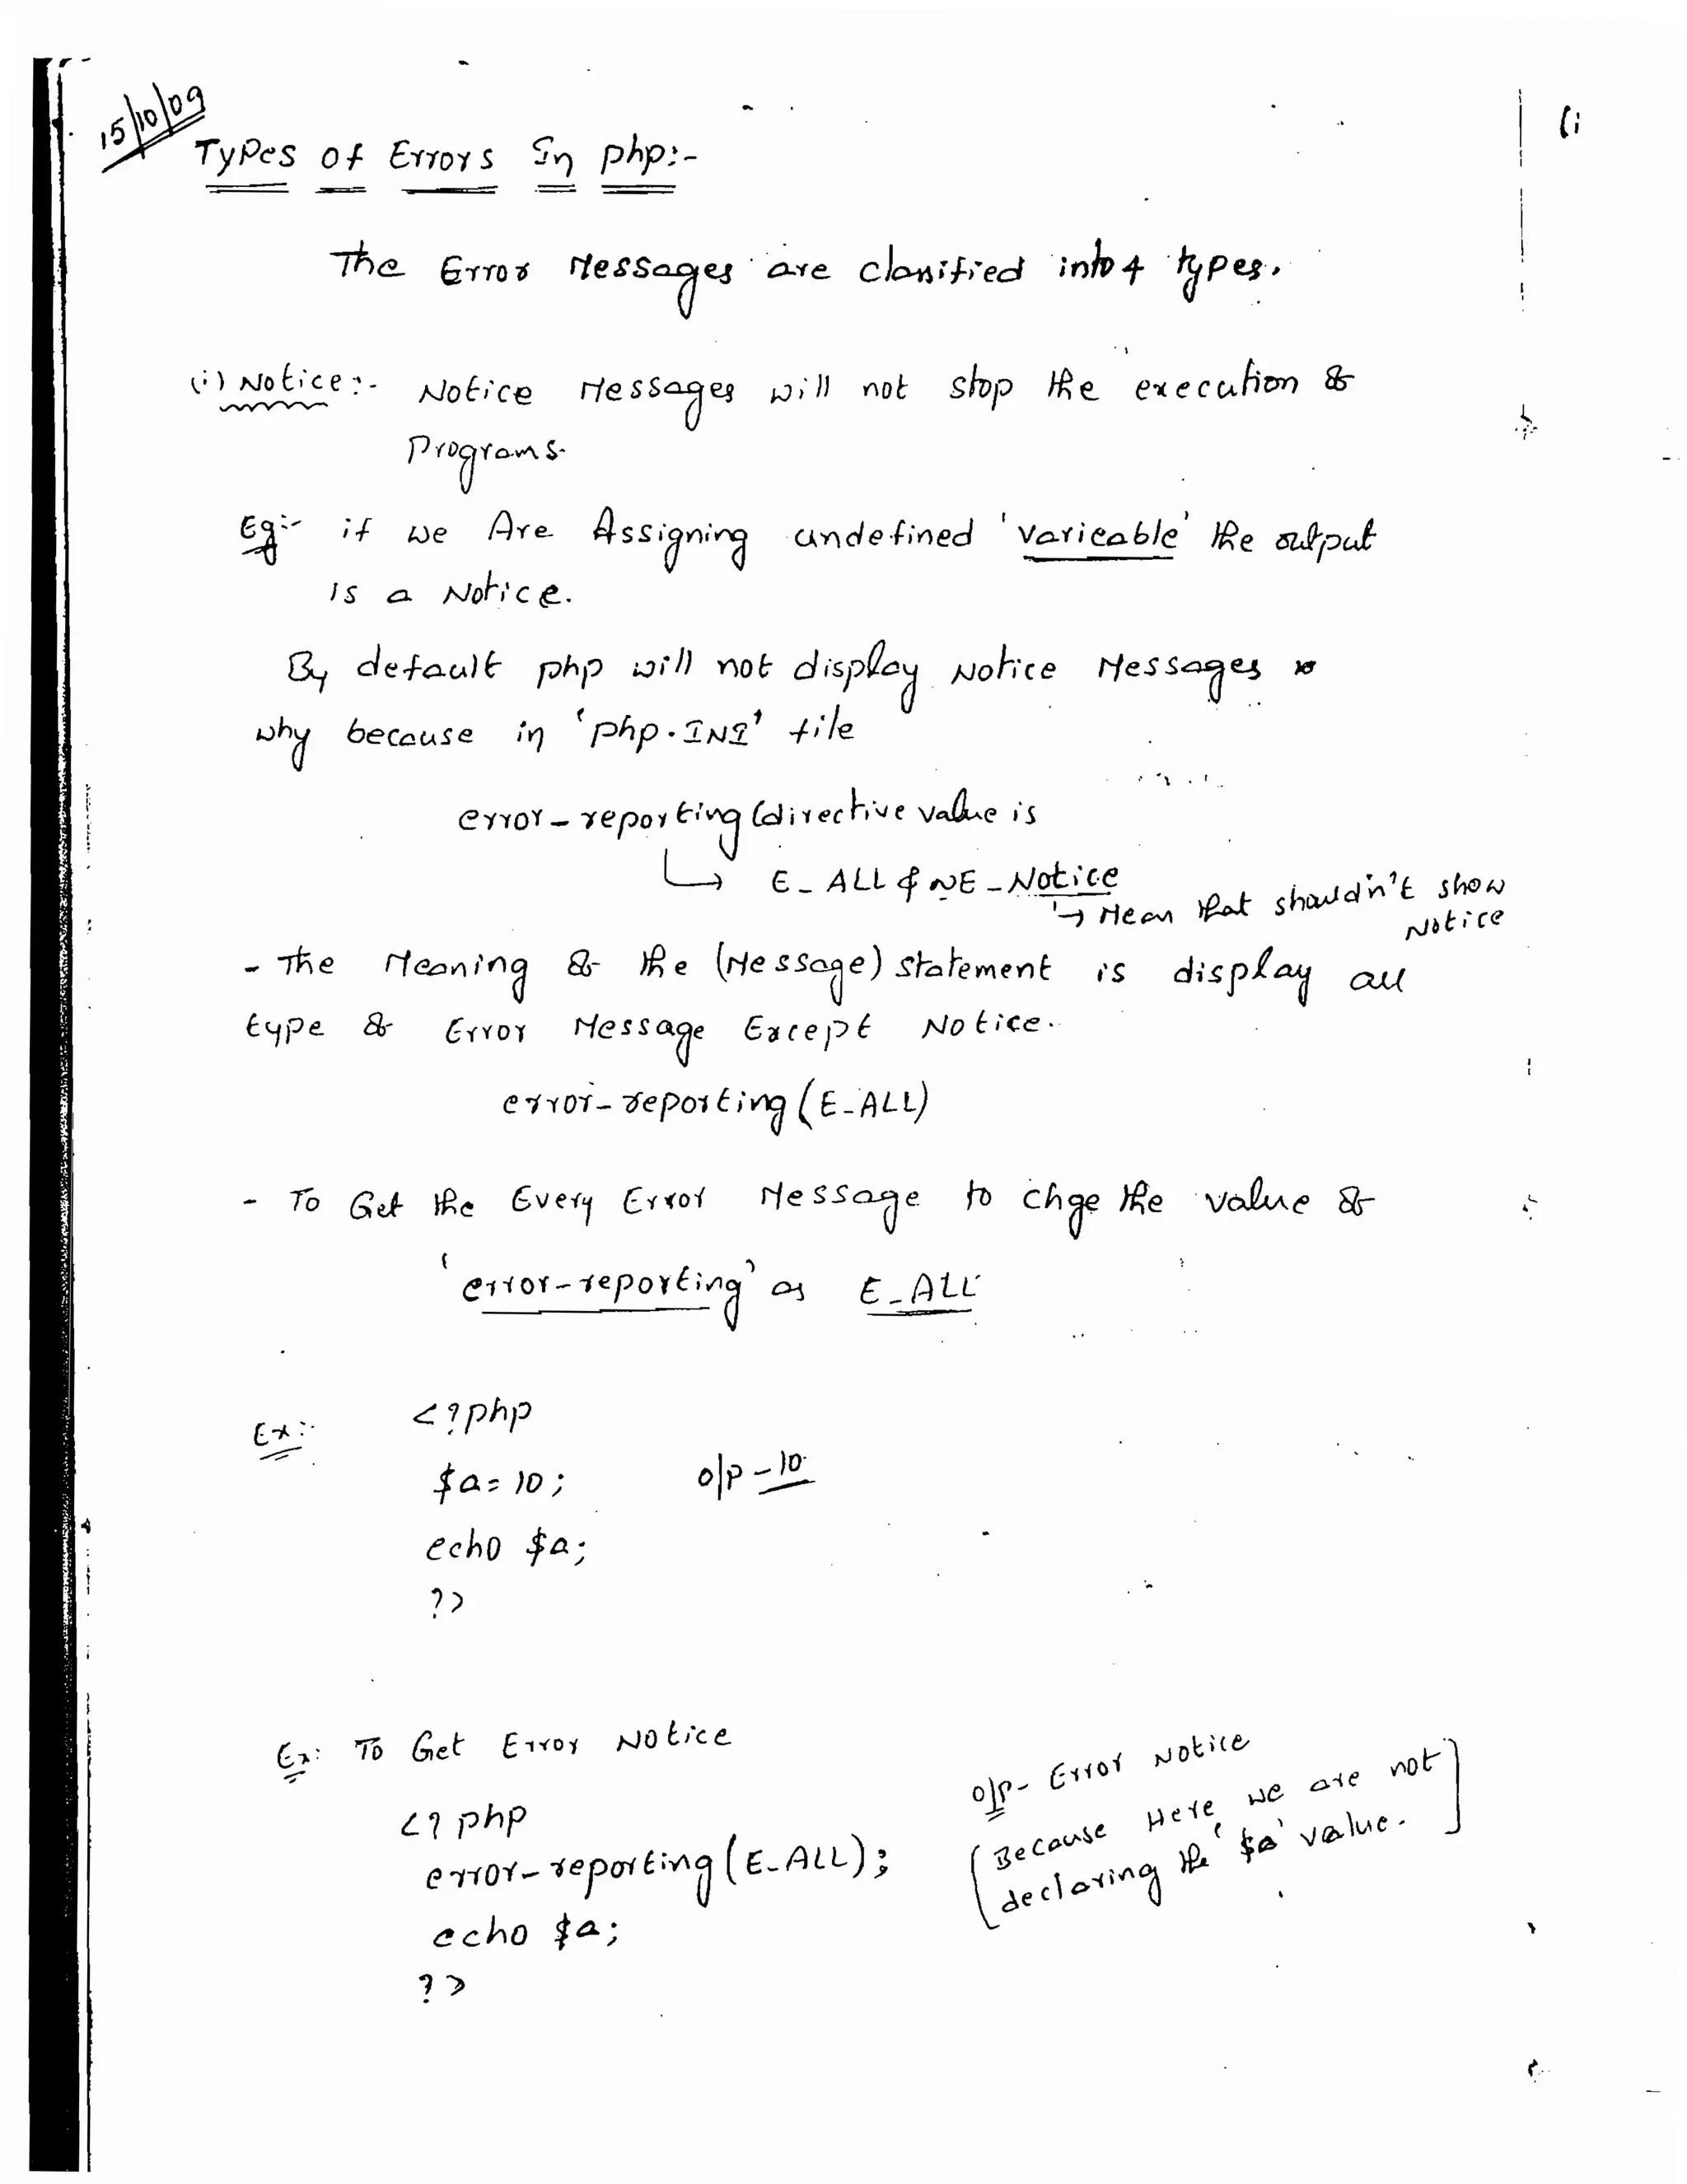 15/10/09
Types of Errors In php:-
The Error Messages are classified into 4 types.
(i) Notice:- Notice Messages will not stop the execution of
Programs.
Eg:- if we Are Assigning undefined 'varieable' the output
is a Notice.
By default php will not display Notice Messages
why because in 'php.INI' file
error_reporting (directive value is
↳ E_ALL & ~E_Notice
↳ Mean that shouldn't show
Notice
- The Meaning of the (Message) statement is display all
type of Error Message Except Notice.
error_reporting (E_ALL)
- To Get the Every Error Message to chge the value of
'error_reporting' as E_ALL
Ex:- <?php
$a = 10; o/p - 10
echo $a;
?>
Ex: To Get Error Notice
<? php
error_reporting (E_ALL);
echo $a;
?>
o/p - Error Notice
[Because Here we are not
declaring the '$a' value.]